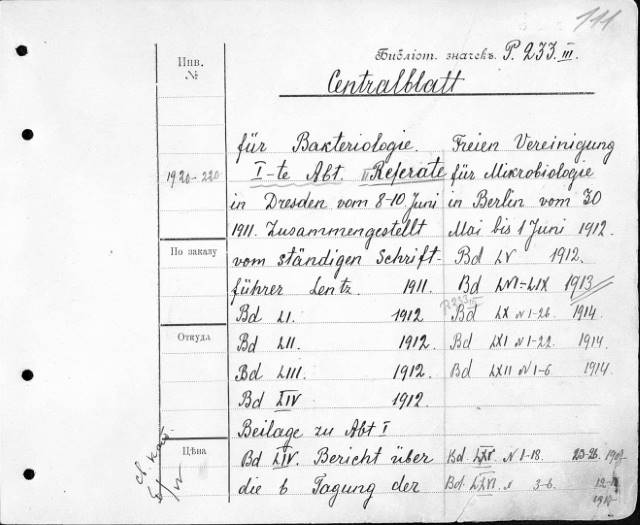 111
Библіот. значекъ. P. 233. III.
Centralblatt
Инв.
№
1920-220
По заказу
Откуда
Цѣна
für Bakteriologie.
I-te Abt. II Referate
in Dresden vom 8-10 Juni
1911. Zusammengestellt
vom ständigen Schrift-
führer Lentz. 1911.
Bd LI. 1912
Bd LII. 1912.
Bd LIII. 1912.
Bd LIV 1912.
Beilage zu Abt I
Bd LIV. Bericht über
die 6 Tagung der
Freien Vereinigung
für Mikrobiologie
in Berlin vom 30
Mai bis 1 Juni 1912.
Bd LV 1912.
Bd LVI-LIX 1913
P233 III
Bd LX N 1-26. 1914.
Bd LXI N 1-22. 1914.
Bd LXII N 1-6. 1914.
Bd. N 1-18. 23-26.
Bd. N 3-6.